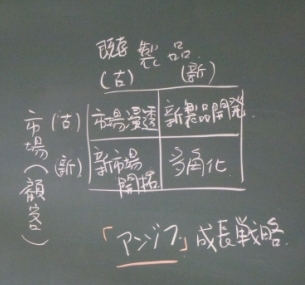 製品
(古) (新)
市場(顧客)
(古) 市場浸透 新製品開発
(新) 新市場 多角化
開拓
「アンゾフ」成長戦略